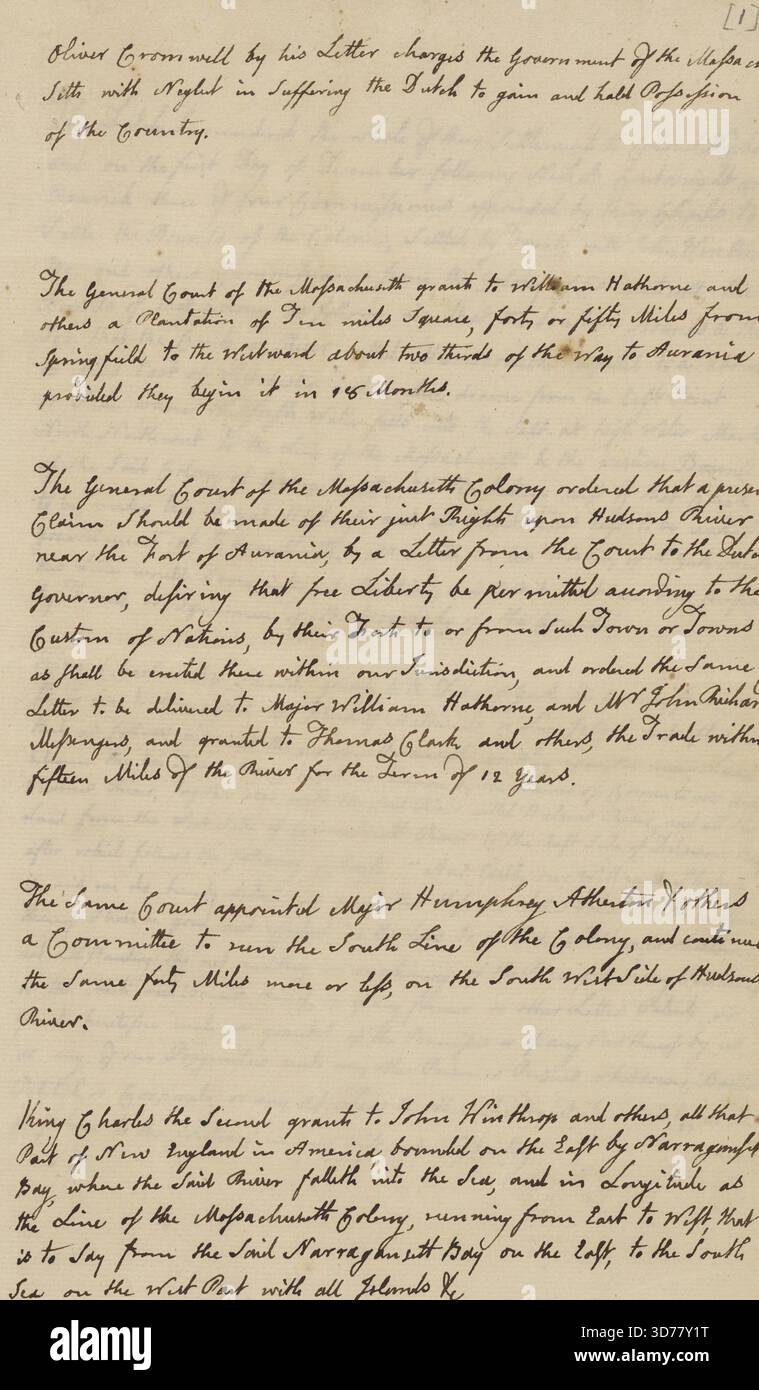 [1]
Oliver Cromwell by his Letter charges the Government of the Massach
setts with Neglect in Suffering the Dutch to gain and hold Possession
of the Country.
The General Court of the Massachusetts grants to William Hathorne and
others a Plantation of Ten miles Square, forty or fifty Miles from
Springfield to the Westward about two thirds of the Way to Aurania
provided they begin it in 18 Months.
The General Court of the Massachusetts Colony ordered that a presen
Claim Should be made of their just Rights upon Hudsons River
near the Fort of Aurania, by a Letter from the Court to the Dutc
Governor, desiring that free Liberty be permitted according to the
Custom of Nations, by their to or from Such Town or Towns
as shall be erected there within our Jurisdiction, and ordered the Same
Letter to be delivered to Major William Hathorne, and Mr. John Richar
Messengers, and granted to Thomas Clark and others, the Trade within
fifteen Miles of the River for the Term of 12 Years.
The Same Court appointed Major Humphrey Atherton & others
a Committee to run the South Line of the Colony, and continue
the Same forty Miles more or less, on the South West Side of Hudsons
River.
King Charles the Second grants to John Winthrop and others, all that
Part of New England in America bounded on the East by Narraganset
Bay, where the Said River falleth into the Sea, and in Longitude as
the Line of the Massachusetts Colony, running from East to West, that
is to Say from the Said Narragansett Bay on the East, to the South
Sea on the West Part with all Islands &c
alamy
Image ID: 3D77Y1T
www.alamy.com